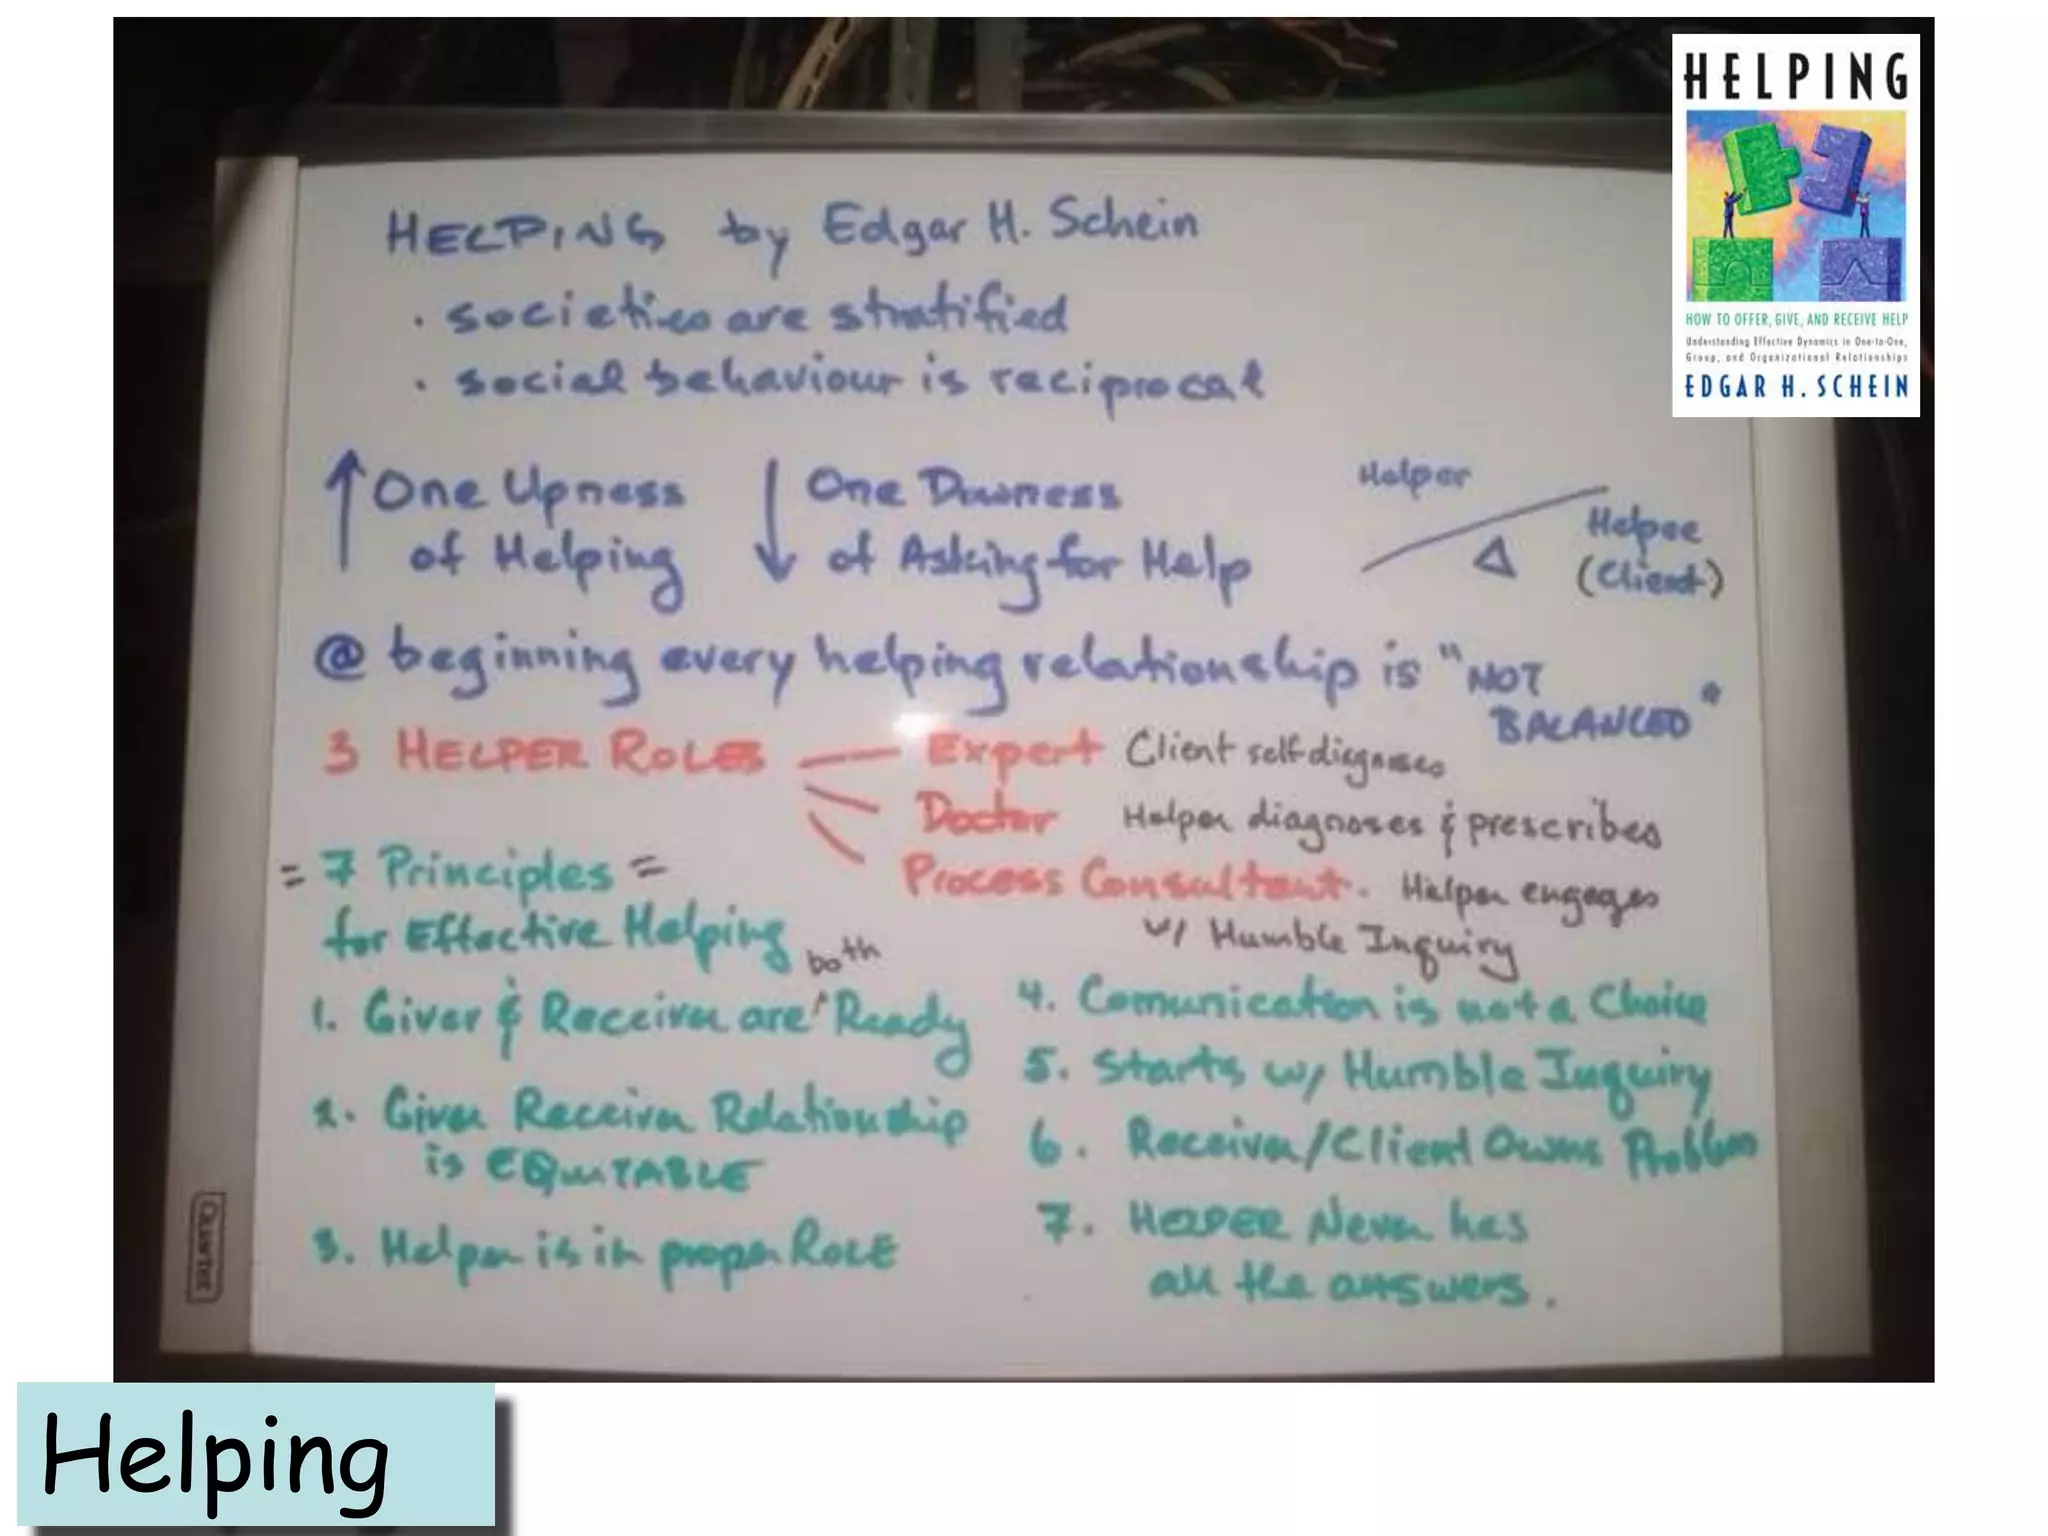 HELPING by Edgar H. Schein
· societies are stratified
· social behaviour is reciprocal
One Upness
of Helping
One Downess
of Asking for Help
Helper
Helpee
(Client)
@ beginning every helping relationship is "NOT
BALANCED"
3 HELPER ROLES
Expert Client self diagnoses
Doctor Helper diagnoses & prescribes
Process Consultant. Helper engages
w/ Humble Inquiry
= 7 Principles =
for Effective Helping
1. Giver & Receiver are both Ready
2. Giver Receiver Relationship
is EQUITABLE
3. Helper is in proper ROLE
4. Comunication is not a Choice
5. Starts w/ Humble Inquiry
6. Receiver/Client Owns Problem
7. HELPER Never has
all the answers.
Quartet
HELPING
HOW TO OFFER, GIVE, AND RECEIVE HELP
Understanding Effective Dynamics in One-to-One,
Group, and Organizational Relationships
EDGAR H. SCHEIN
Helping